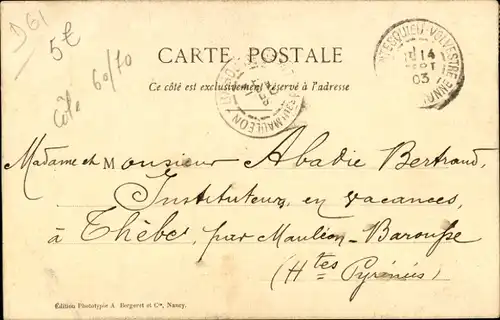 D61
5€
côte 60/70
CARTE POSTALE
Ce côté est exclusivement réservé à l'adresse
MONTESQUIEU-VOLVESTRE
14
SEPT
03
MAULEON
Madame et Monsieur Abadie Bertrand,
Instituteurs en vacances,
à Thèbe, par Mauléon-Barousse
(Htes Pyrénées)
Édition Phototypie A Bergeret et Cie, Nancy.